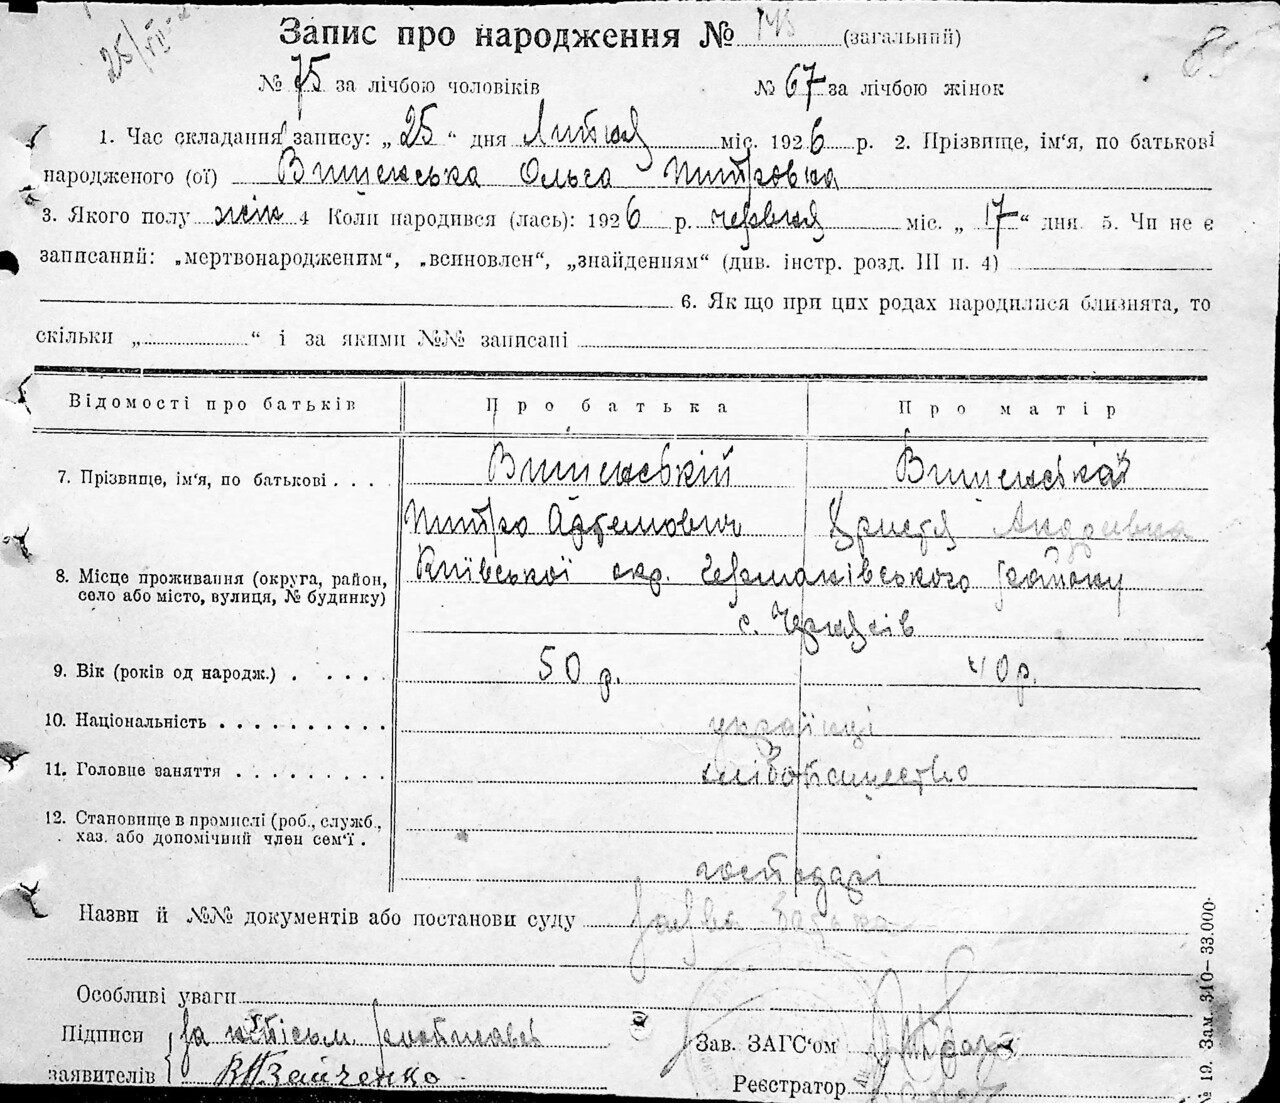 25/VII
Запис про народження № 143 (загальний)
№ 75 за лічбою чоловіків № 67 за лічбою жінок
1. Час складання запису: „25“ дня Липня міс. 1926 р. 2. Прізвище, ім'я, по батькові
народженого (ої) Вишенська Ольга Митровна
3. Якого полу жін 4 Коли народився (лась): 1926 р. червня міс. „17“ дня. 5. Чи не є
записаний: „мертвонародженим“, „всиновлен“, „знайденням“ (див. інстр. розд. III п. 4)
6. Як що при цих родах народилися близнята, то
скільки „ “ і за якими №№ записані
Відомості про батьків Про батька Про матір
7. Прізвище, ім'я, по батькові . . . . Вишенській Вишенська
Митро Артемович Христя Андріївна
8. Місце проживання (округа, район, Київської окр. Германівського району
село або місто, вулиця, № будинку)
с.
9. Вік (років од народж.) . . . . . 50 р. 40 р.
10. Національність . . . . . . . . . . українці
11. Головне заняття . . . . . . . . . хліборобство
12. Становище в промислі (роб., служб.,
хаз. або допомічний член сем'ї .
господарі
Назви й №№ документів або постанови суду заява батька
Особливі уваги
Підписи За
заявителів Зайченко
Зав. ЗАГС'ом
Реєстратор
№ 19. Зам. 310—33.000.